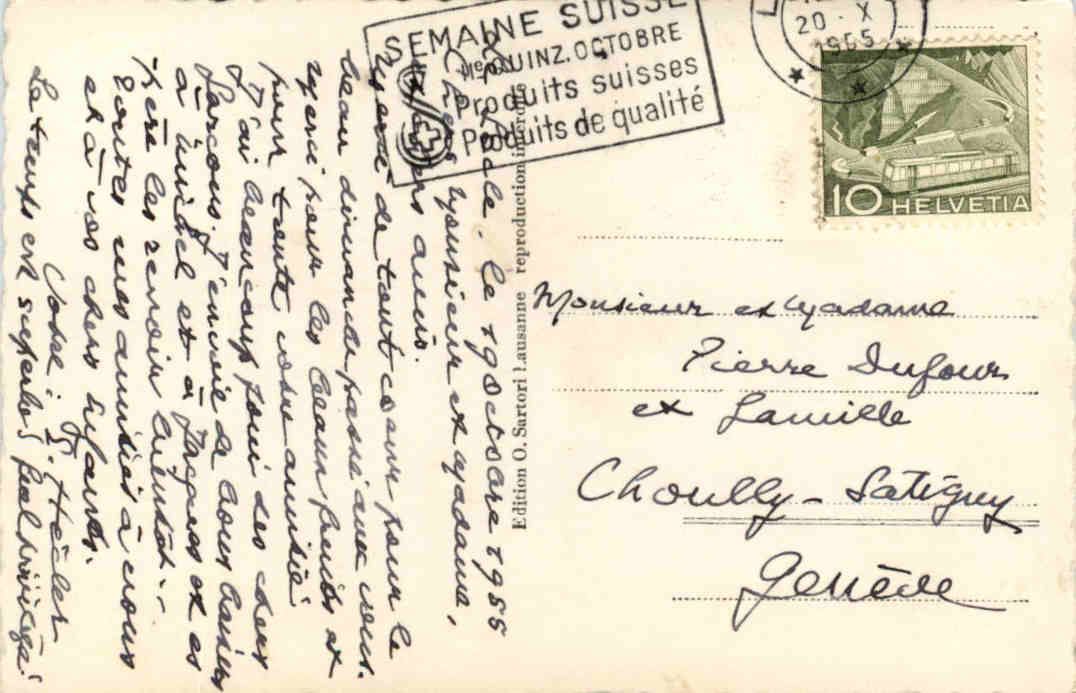 SEMAINE SUISSE
IIe QUINZ. OCTOBRE
Produits suisses
Produits de qualité
20 · X
1955
10 HELVETIA
le 19 octobre 1955
Chers Monsieur et Madame,
Chers amis.
Merci de tout cœur pour le
beau dimanche passé avec vous.
Merci pour les beaux fruits et
pour toute votre amitié
J'ai beaucoup joui des chers
garçons. J'envoie de bons baisers
à Michel et à Jacques et
les revoir bientôt.
Toutes mes amitiés à vous
et à vos chers enfants.
Votre
Le temps est superbe!
Edition O. Sartori Lausanne reproduction interdite
Monsieur et Madame
Pierre Dufour
et famille
Choully - Satigny
Genève